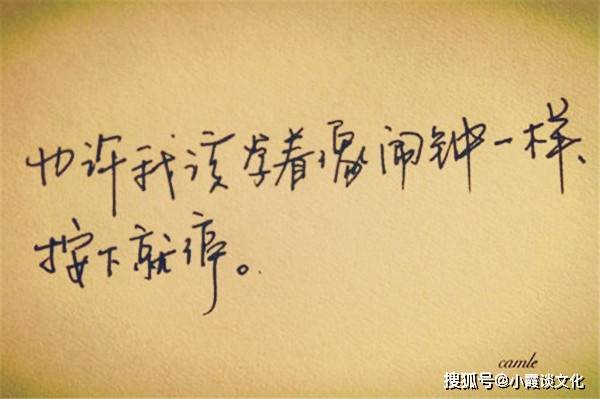 也许我该学着像闹钟一样、
按下就停。
camle
搜狐号@小霞谈文化